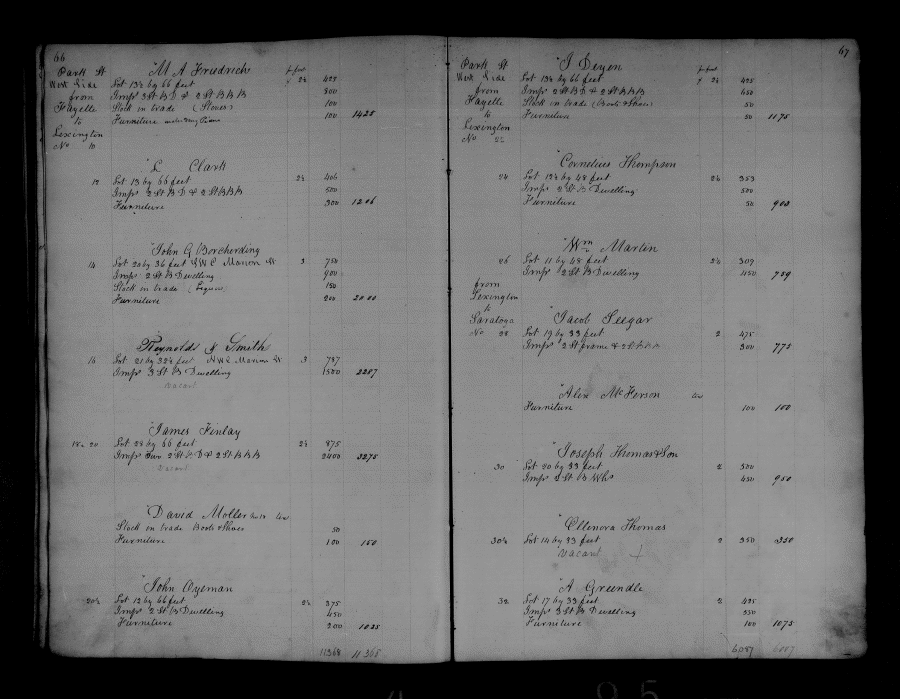 66
Park St "M A Friedrich pr foot
West Side Lot 13½ by 66 feet 2½ 425
from Imps 3 St B D & 2 St B B B 800
Fayette Stock in trade (Stoves) 100
to Furniture 100 1425
Lexington
No 10
"L Clark
12 Lot 13 by 66 feet 2½ 406
Imps 2 St B D & 2 St B B B 500
Furniture 300 1206
"John G Borcherding
14 Lot 20 by 36 feet S W C Marion St 3 750
Imps 2 St B Dwelling 900
Stock in trade (Liquor) 150
Furniture 200 2000
"Reynolds & Smith
16 Lot 21 by 32½ feet N W C Marion St 3 787
Imps 3 St B Dwelling 1500 2287
vacant
"James Finlay
18 & 20 Lot 28 by 66 feet 2½ 875
Imps Two 2 St B D & 2 St B B B 2400 3275
vacant
"David Moller
Stock in trade Boots & Shoes 50
Furniture 100 150
"John Oyeman
20½ Lot 12 by 66 feet 2½ 375
Imps 2 St B Dwelling 450
Furniture 200 1025
11368 11368
67
Park St "J Deyen pr foot
West Side Lot 13½ by 66 feet 2½ 425
from Imps 2 St B D & 2 St B B B 650
Fayette Stock in trade (Boots & Shoes) 50
to Furniture 50 1175
Lexington
No 22
"Cornelius Thompson
24 Lot 13½ by 48 feet 2½ 353
Imps 2 St B Dwelling 500
Furniture 50 903
"Wm Martin
26 Lot 11 by 48 feet 2½ 309
Imps 2 St B Dwelling 450 759
from
Lexington
to
Saratoga "Jacob Seegar
No 28 Lot 19 by 33 feet 2 475
Imps 2 St frame & 2 St B B B 300 775
"Alex McFerson
Furniture 100 100
"Joseph Thomas & Son
30 Lot 20 by 33 feet 2 500
Imps 2 St B Whs 450 950
"Ellenora Thomas
30½ Lot 14 by 33 feet 2 350 350
vacant
"A Greendle
32 Lot 17 by 33 feet 2 425
Imps 3 St B Dwelling 550
Furniture 100 1075
6,087 6087